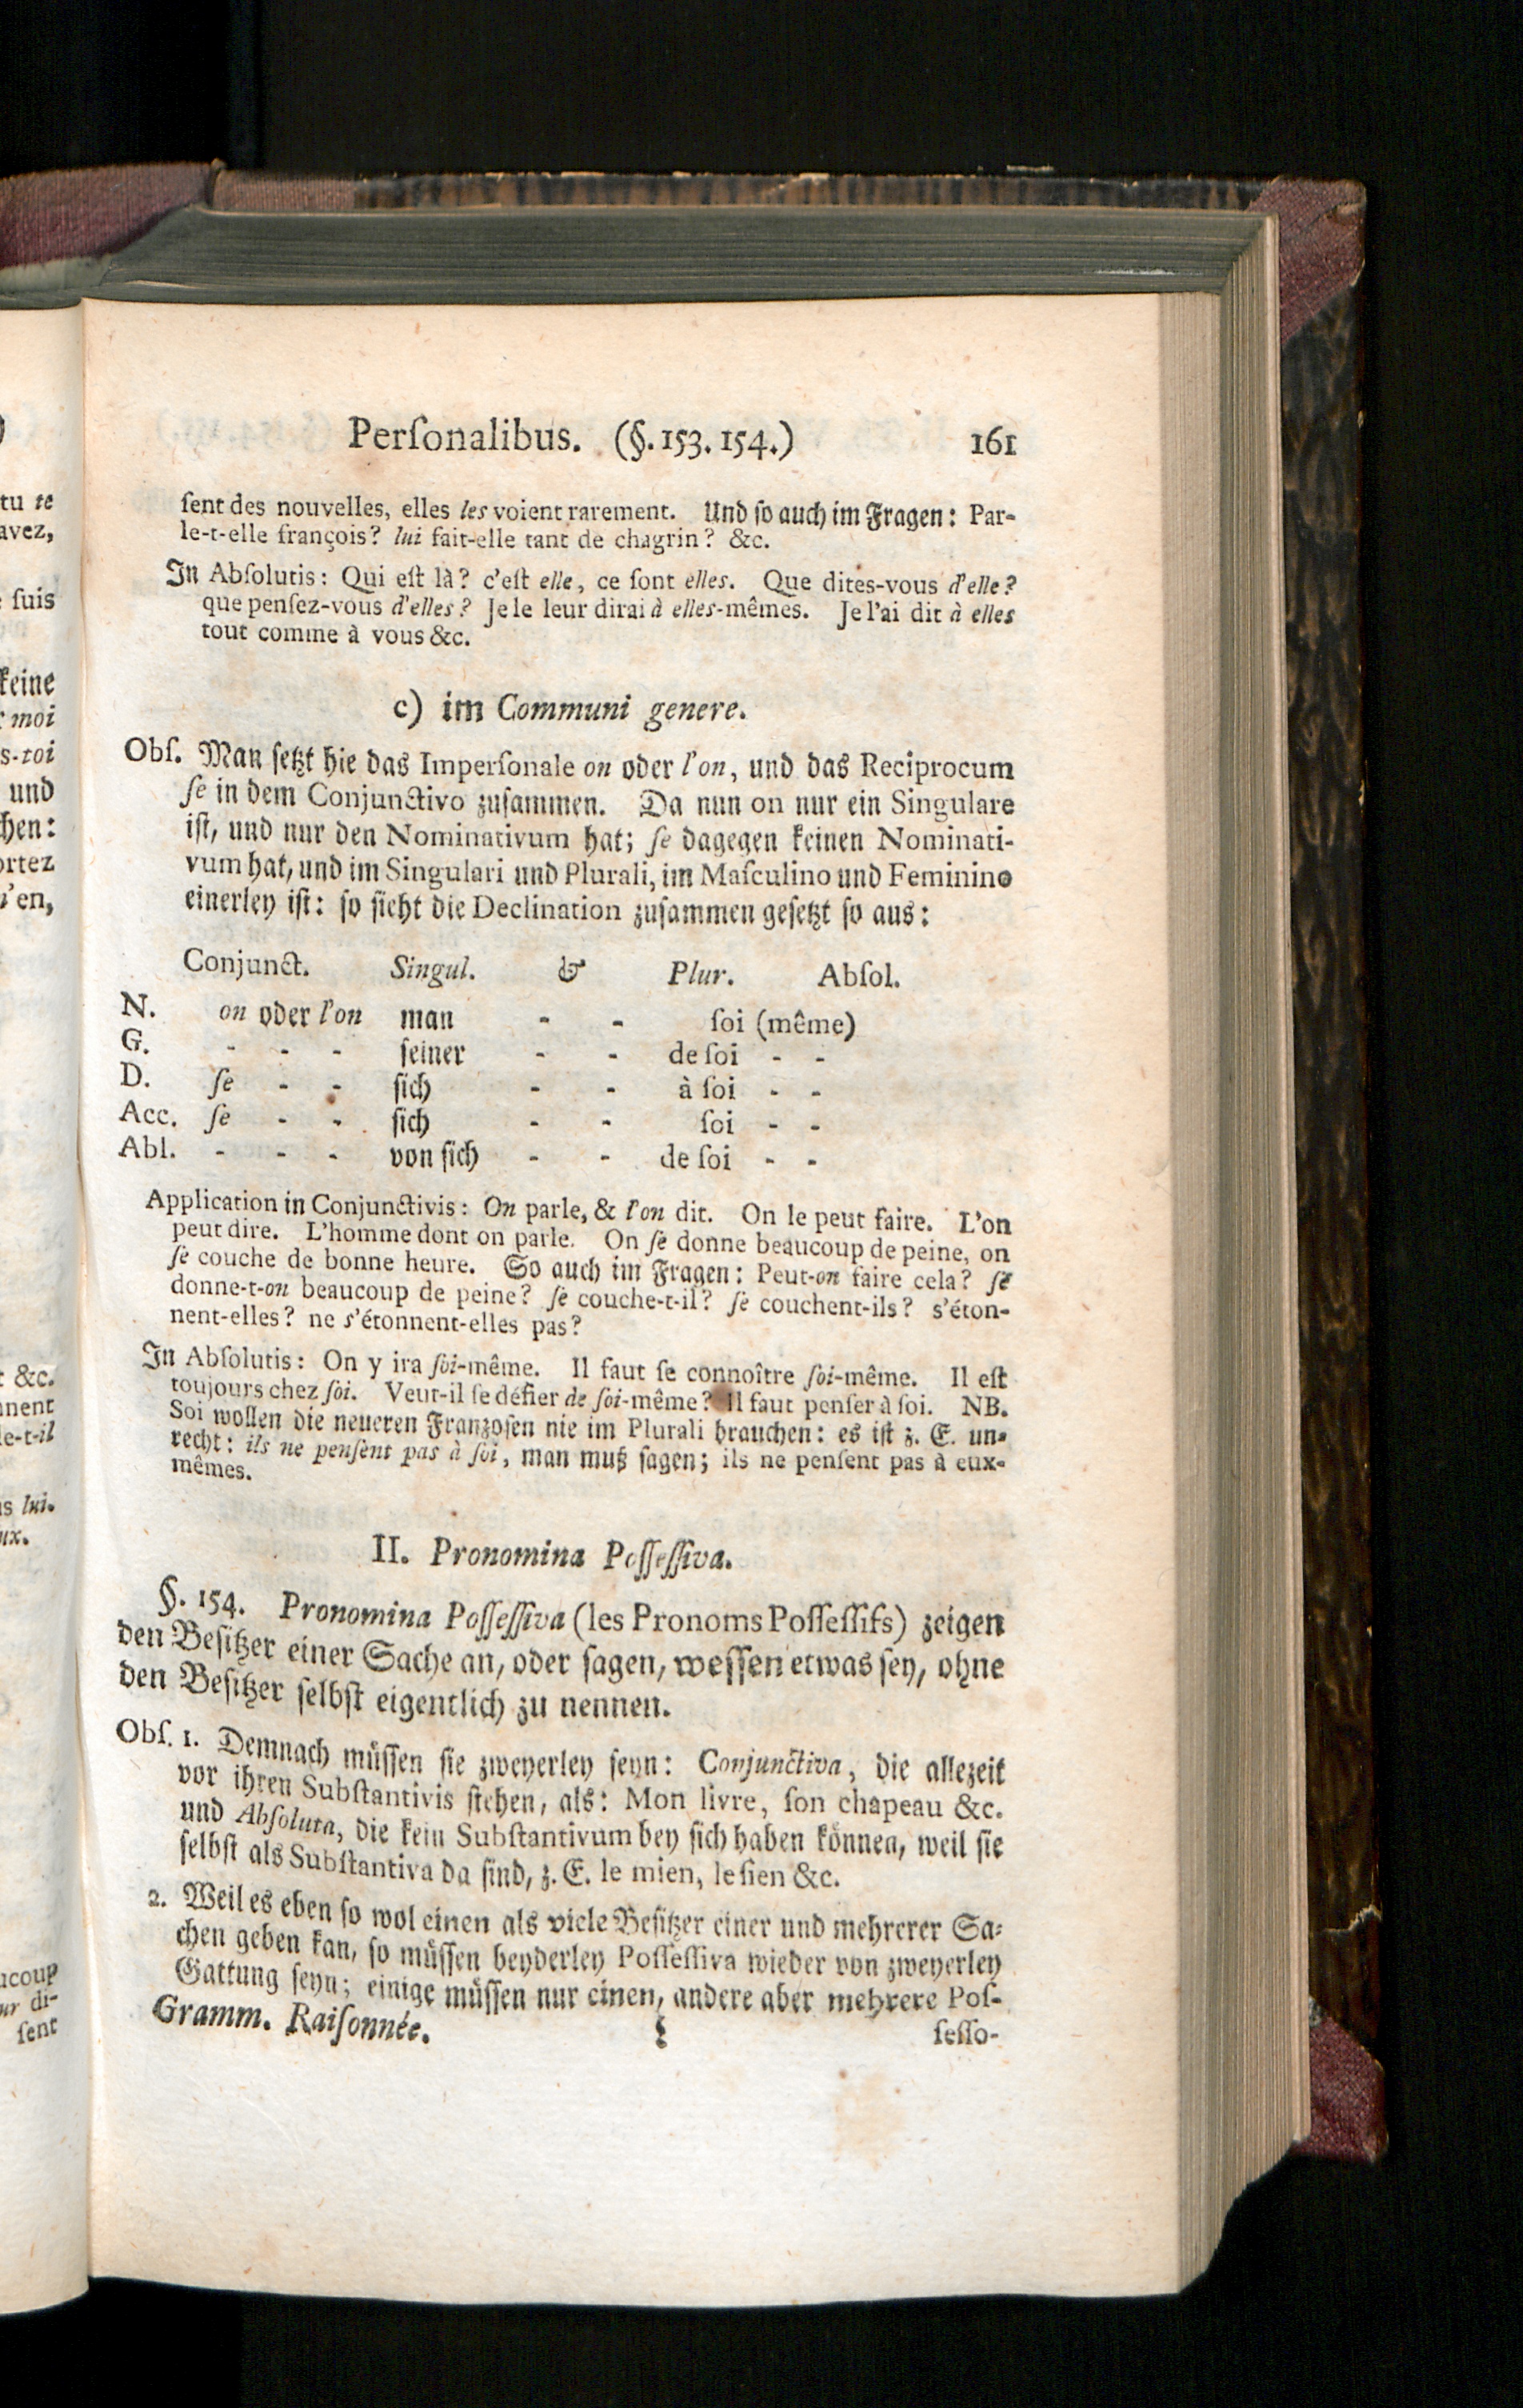 Perſonalibus. (§. 153. 154.) 161
ſent des nouvelles, elles les voient rarement. Und ſo auch im Fragen: Par-
le-t-elle françois? lui fait-elle tant de chagrin? &c.
In Abſolutis: Qui eſt là? c'eſt elle, ce ſont elles. Que dites-vous d'elle?
que penſez-vous d'elles? Je le leur dirai à elles-mêmes. Je l'ai dit à elles
tout comme à vous &c.
c) im Communi genere.
Obſ. Man ſetzt hie das Imperſonale on oder l'on, und das Reciprocum
ſe in dem Conjunctivo zuſammen. Da nun on nur ein Singulare
iſt, und nur den Nominativum hat; ſe dagegen keinen Nominati-
vum hat, und im Singulari und Plurali, im Maſculino und Feminino
einerley iſt: ſo ſieht die Declination zuſammen geſetzt ſo aus:
Conjunct. Singul. & Plur. Abſol.
N. on oder l'on man - - ſoi (même)
G. - - - ſeiner - - de ſoi - -
D. ſe - - ſich - - à ſoi - -
Acc. ſe - - ſich - - ſoi - -
Abl. - - - von ſich - - de ſoi - -
Application in Conjunctivis: On parle, & l'on dit. On le peut faire. L'on
peut dire. L'homme dont on parle. On ſe donne beaucoup de peine, on
ſe couche de bonne heure. So auch im Fragen: Peut-on faire cela? ſe
donne-t-on beaucoup de peine? ſe couche-t-il? ſe couchent-ils? s'éton-
nent-elles? ne s'étonnent-elles pas?
In Abſolutis: On y ira ſoi-même. Il faut ſe connoître ſoi-même. Il eſt
toujours chez ſoi. Veut-il ſe défier de ſoi-même? Il faut penſer à ſoi. NB.
Soi wollen die neueren Franzoſen nie im Plurali brauchen: es iſt z. E. un-
recht: ils ne penſent pas à ſoi, man muß ſagen; ils ne penſent pas à eux-
mêmes.
II. Pronomina Poſſeſſiva.
§. 154. Pronomina Poſſeſſiva (les Pronoms Poſſeſſifs) zeigen
den Beſitzer einer Sache an, oder ſagen, weſſen etwas ſey, ohne
den Beſitzer ſelbſt eigentlich zu nennen.
Obſ. 1. Demnach müſſen ſie zweyerley ſeyn: Conjunctiva, die allezeit
vor ihren Subſtantivis ſtehen, als: Mon livre, ſon chapeau &c.
und Abſoluta, die kein Subſtantivum bey ſich haben können, weil ſie
ſelbſt als Subſtantiva da ſind, z. E. le mien, le ſien &c.
2. Weil es eben ſo wol einen als viele Beſitzer einer und mehrerer Sa-
chen geben kan, ſo müſſen beyderley Poſſeſſiva wieder von zweyerley
Gattung ſeyn; einige müſſen nur einen, andere aber mehrere Poſ-
Gramm. Raiſonnée. L ſeſſo-